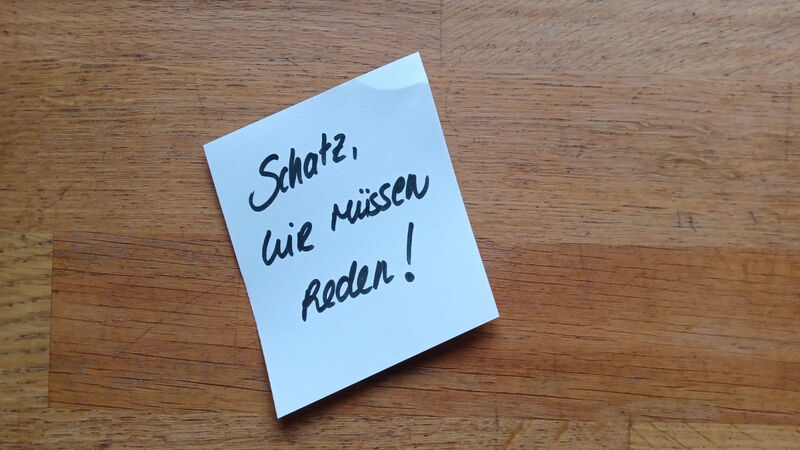 Schatz,
wir müssen
reden!